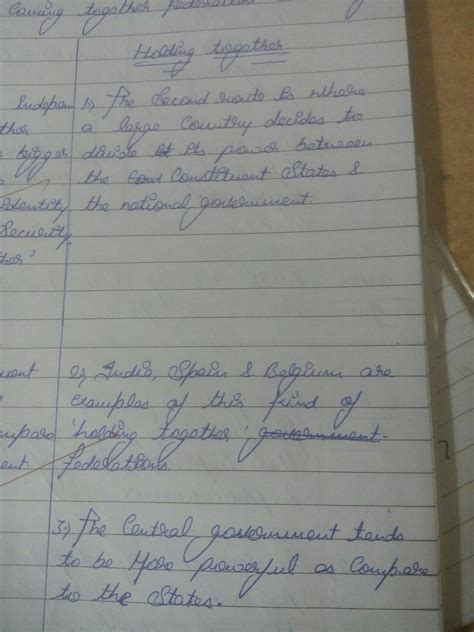 Coming together Federation
Holding together
Indepen
ther
bigger
Identity
Security
ther'
1) The Second route is where
a large Country decides to
divide its power between
the Constituent States &
the national government.
2) India, Spain & Belgium are
examples of this kind of
'holding together' government
federations.
3) The Central government tends
to be More powerful as Compare
to the States.
ment
mpare
ent